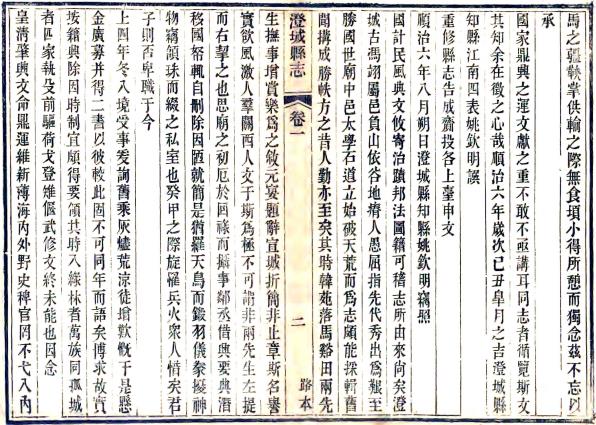 馬之驅軼掌供輸之際無食頃小得所憩而獨念茲不忘以
承
國家鼎興之運文獻之重不敢不亟講耳同志者循覽斯文
其知余在徵之心哉順治六年歲次己丑皐月之吉澄城縣
知縣江南四表姚欽明譔
重修縣志吿成齎投各上臺申文
順治六年八月朔日澄城縣知縣姚欽明竊照
國計民風典文攸寄治蹟邦法圖籍可稽志所由來尚矣澄
城古馮翊屬邑負山依谷地瘠人愚屈指先代秀出爲艱至
勝國世廟中邑太學石道立始破天荒而爲志頗能採輯舊
聞搆成勝軼方之昔人勤亦至矣其時韓苑落馬谿田兩先
澄城縣志
卷一
二
路本
生撫事增賞樂爲之敘元宴題辭宜城折簡非止章斯名譽
實欲風激人羣關西人文于斯爲極不可謂非兩先生左提
而右挈之也思廟之初厄於回祿而攝事鄒丞借興要典潛
移國帑輒自刪除因陋就簡是猶羅天鳥而鎩羽儀參擾神
物竊頷珠而綴之私室也癸甲之際旋羅兵火衆人惜矣君
子則否卑職于今
上四年冬入境受事爰詢舊乘灰燼荒涼徒增歎慨于是懸
金廣募幷得二書以彼較此固不可同年而語矣博求故實
按籍興除因時制宜頗得要領其時入綠林者萬族同孤城
者四家執殳前驅荷戈登陴偃武修文終未能也因念
皇淸肇興文命鼎運維新薄海內外野史稗官罔不弋入內